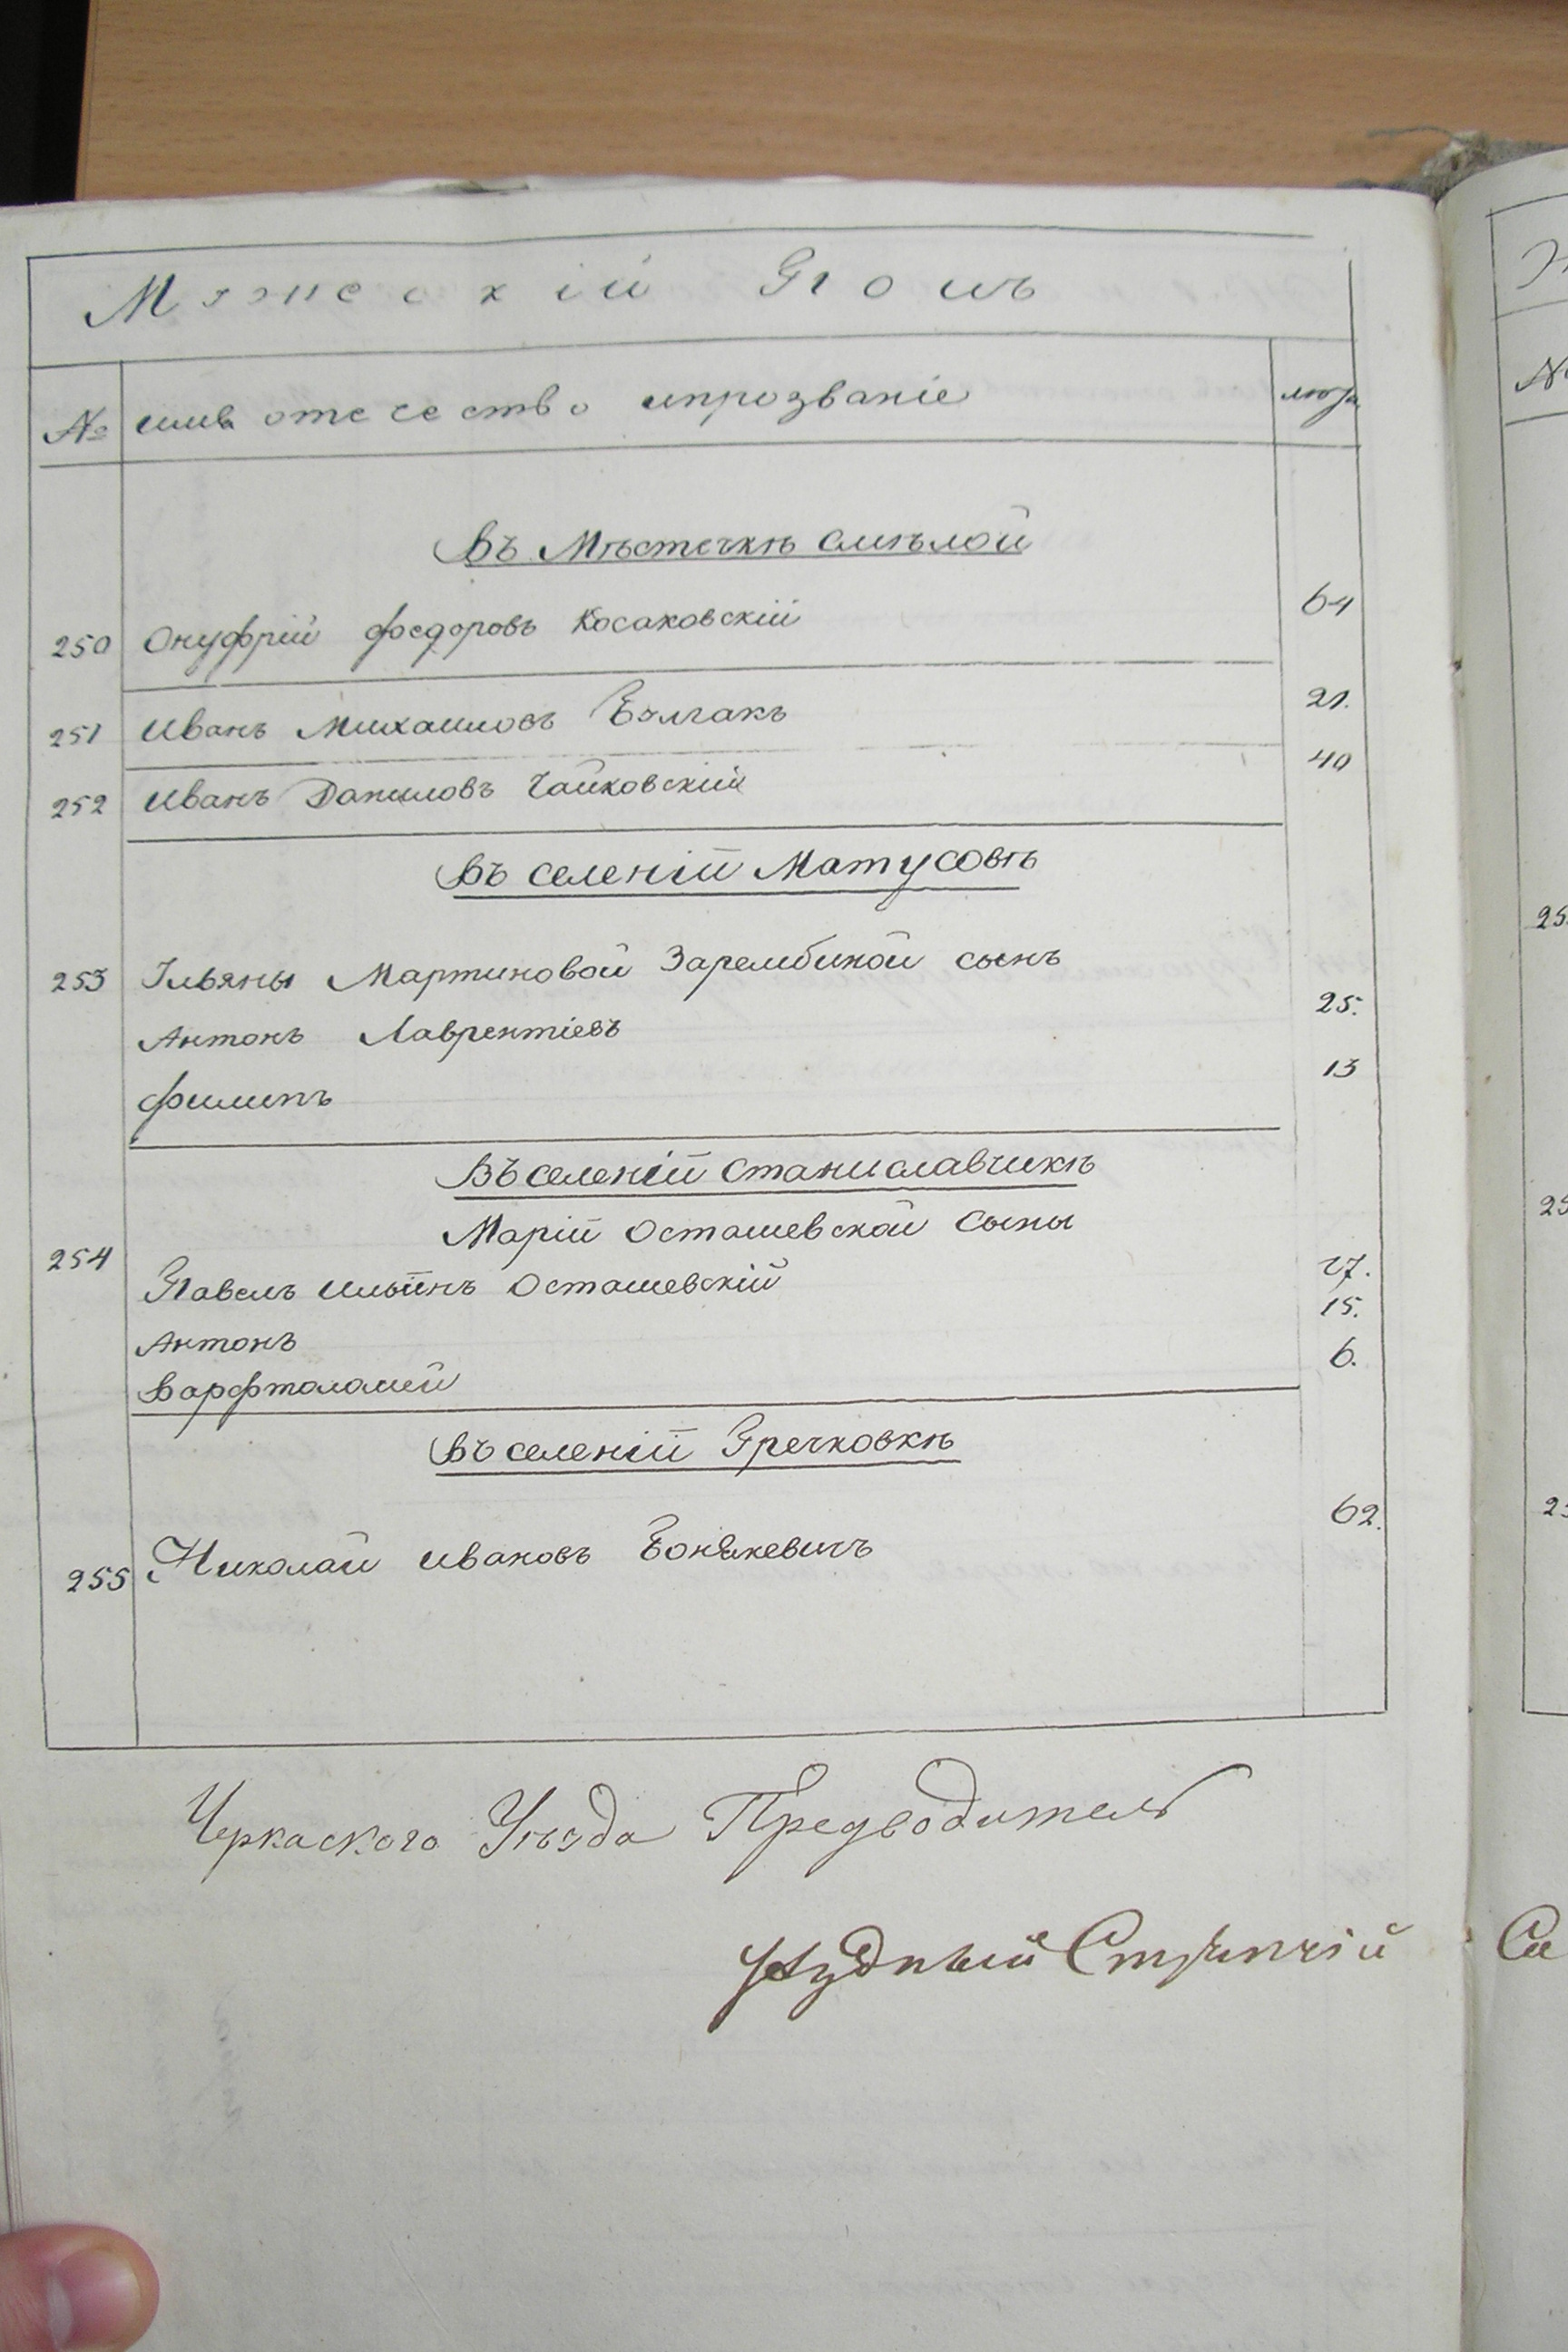 Мужескій Полъ
№ имя отечество ипрозваніе лѣта
Въ Мѣстечкѣ Смѣлой
250 Онуфрій Федоровъ Косаковскій 64
251 Иванъ Михаиловъ Булгакъ 21.
252 Иванъ Даниловъ Чайковскій 40
Въ селеній Матусовѣ
253 Ільяны Мартиновой Зарембиной сынъ
Антонъ Лаврентіевъ 25.
Филипъ 13
Въ селеній Станиславчикѣ
254 Марій Осташевской Сыны
Павелъ Ильинъ Осташевскій 27.
Антонъ 15.
Варфтоломей 6.
Въ селеній Гречковкѣ
255 Николай Ивановъ Бонѣкевичъ 62.
Черкаского Уѣзда Предводитель
№
25
25
25